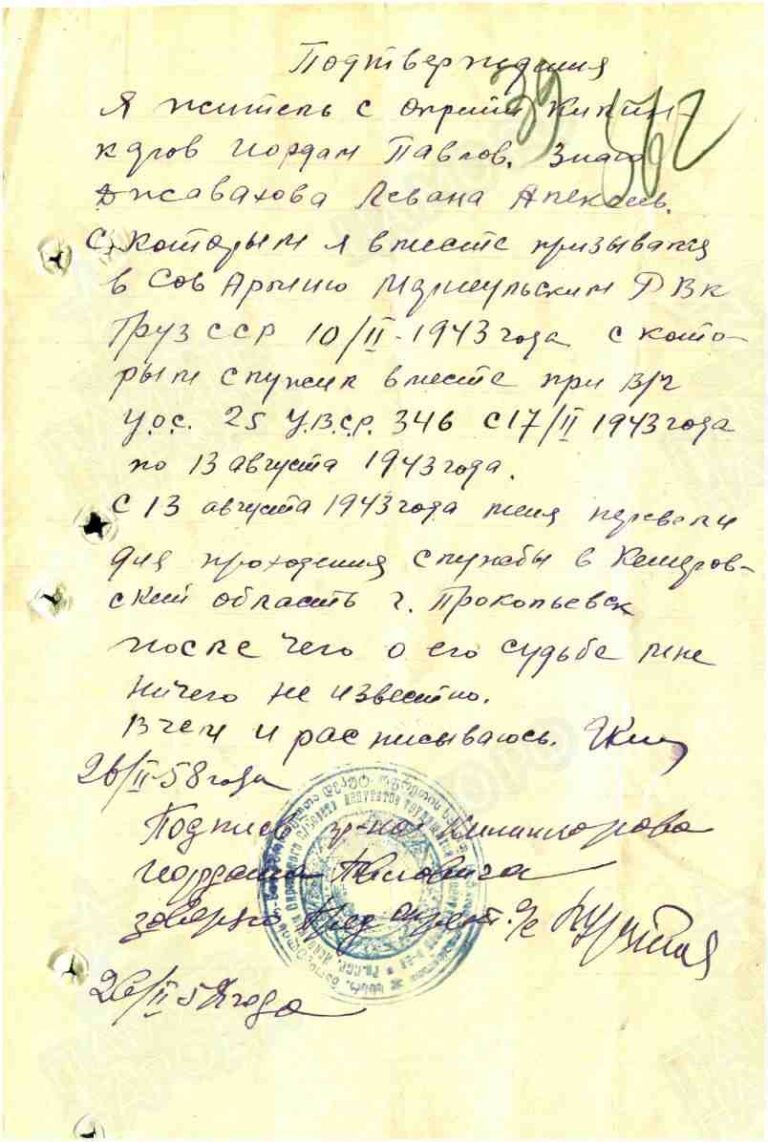 Подтверждения
39 562
Я житель с Опрети Килин-
каров Иордан Павлов. Знаю
Джавахова Левана Алексеев.
С которым я вместе призывался
в Сов Армию Марнеульским РВК
Груз ССР 10/II-1943 года с кото-
рым служил вместе при В/Ч
У.О.С. 25 У.В.С.Р. 346 с 17/II 1943 года
по 13 августа 1943 года.
С 13 августа 1943 года меня перевели
для прохождения службы в Кемеров-
ский область г. Прокопьевск
после чего о его судьбе мне
ничего не известно.
В чем и расписываюсь.
26/II-58 года
Подпись гр-на
Иордана Павловича
заверяю Пред
26/II-58 года